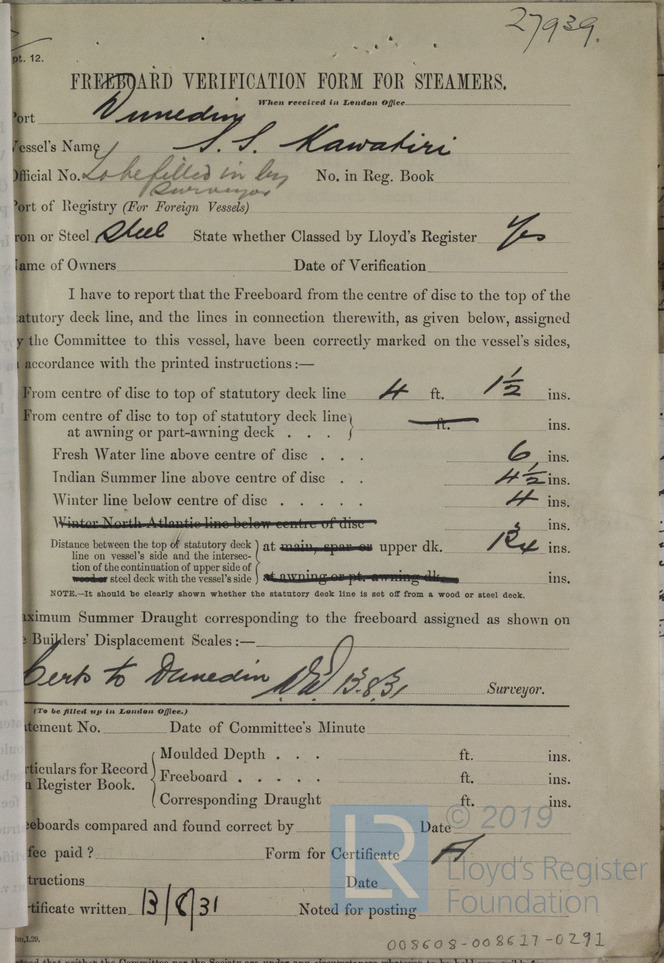 27939.
pt. 12.
FREEBOARD VERIFICATION FORM FOR STEAMERS.
When received in London Office
Port Dunedin
Vessel's Name S.S. Kawatiri
Official No. To be filled in by surveyor No. in Reg. Book
Port of Registry (For Foreign Vessels)
ron or Steel Steel State whether Classed by Lloyd's Register Yes
ame of Owners Date of Verification
I have to report that the Freeboard from the centre of disc to the top of the
tatutory deck line, and the lines in connection therewith, as given below, assigned
y the Committee to this vessel, have been correctly marked on the vessel's sides,
accordance with the printed instructions:—
From centre of disc to top of statutory deck line 4 ft. 1½ ins.
From centre of disc to top of statutory deck line
at awning or part-awning deck . . . ft. ins.
Fresh Water line above centre of disc . . . 6 ins.
Indian Summer line above centre of disc . . 4½ ins.
Winter line below centre of disc . . . . . 4 ins.
Winter North Atlantic line below centre of disc ins.
Distance between the top of statutory deck
line on vessel's side and the intersec-
tion of the continuation of upper side of
wood or steel deck with the vessel's side
at main, spar or upper dk. ins.
at awning or pt. awning dk. ins.
NOTE.—It should be clearly shown whether the statutory deck line is set off from a wood or steel deck.
ximum Summer Draught corresponding to the freeboard assigned as shown on
e Builders' Displacement Scales:—
Certs to Dunedin 13.8.31 Surveyor.
(To be filled up in London Office.)
tement No. Date of Committee's Minute
rticulars for Record
n Register Book.
Moulded Depth . . . ft. ins.
Freeboard . . . . . ft. ins.
Corresponding Draught ft. ins.
eeboards compared and found correct by Date
fee paid ? Form for Certificate A
tructions Date
tificate written 13/8/31 Noted for posting
© 2019
LR
Lloyd's Register
Foundation
008608-008617-0291